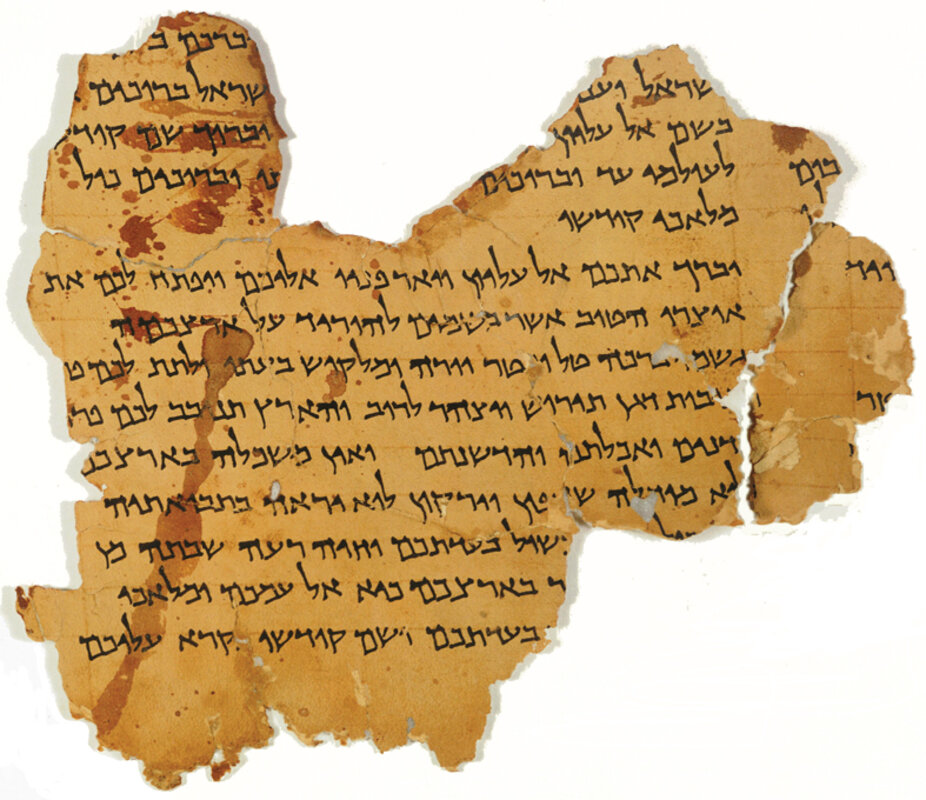 ברכם ב
שראל וענ שראל ברוכים
בשם אל עליון וברוך שם קודש
לעולמי עד וברוכים וברוכים כול
מלאכי קודשו
יברך אתכם אל עליון ויאר פניו אליכם ויפתח לכם את
אוצרו הטוב אשר בשמים להוריד על ארצכמה
גשמי ברכה טל ומטר יורה ומלקוש בעתו ולתת לכם
תנובות דגן תירוש ויצהר לרוב והארץ תנובב לכם פר
דנים ואכלתם והדשנתם ואין משכלה בארצכ
לוא מוחלה שדפון וירקון לוא יראה בתבואתיה
שול בעדתכם וחיה רעה שבתה מן
ר בארצכם כיא אל עמכם ומלאכי
בעדתכם ושם קודשו נקרא עליכם